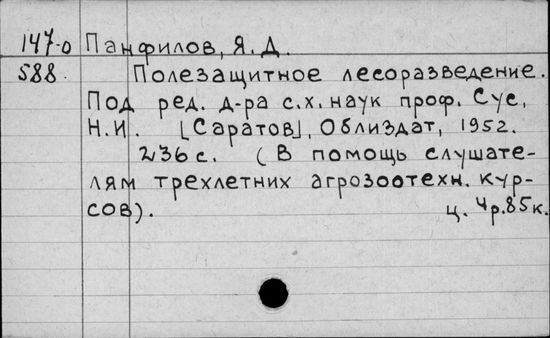 147-о Панфилов, Я. Д.
588. Полезащитное лесоразведение.
Под ред. д-ра с.х. наук проф. Сус,
Н.И. [Саратов], Облиздат, 1952.
236 с. (В помощь слушате-
лям трехлетних агрозоотехн. кур-
сов). ц. 4р.85к.